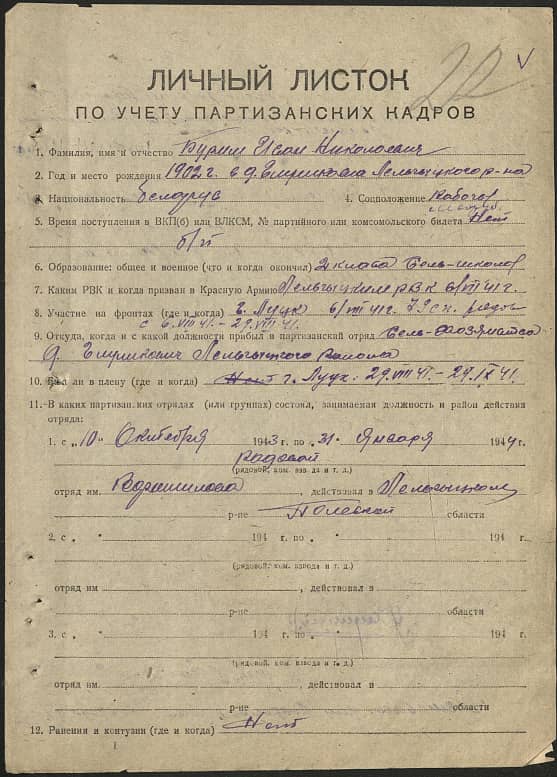 ЛИЧНЫЙ ЛИСТОК
ПО УЧЕТУ ПАРТИЗАНСКИХ КАДРОВ
1. Фамилия, имя и отчество Бурим Иван Николаевич
2. Год и место рождения 1902 г. в д. Лельчыцкого р-на
3. Национальность белорус 4. Соцположение Рабочий
5. Время поступления в ВКП(б) или ВЛКСМ, № партийного или комсомольского билета Нет
б/п
6. Образование: общее и военное (что и когда окончил) 2 класса Сель-школы
7. Каким РВК и когда призван в Красную Армию Лельчыцким РВК 6/VIII 41 г.
8. Участие на фронтах (где и когда) г. Луцк 6/VIII 41 г.
с 6.VIII 41. - 29.VIII 41.
9. Откуда, когда и с какой должности прибыл в партизанский отряд Сель-хозяйства
д. Лельчыцкого Района
10. Был ли в плену (где и когда) Нет г. Луцк: 29.VIII 41 - 29.IX 41.
11. В каких партизанских отрядах (или группах) состоял, занимаемая должность и район действия
отряда:
1. с „10" Октября 1943 г. по „31" Января 1944 г.
Радовой
(рядовой, ком. взвода и т. д.)
отряд им. Ворошилова, действовал в Лельчыцком
р-не Полеской области
2. с „ " 194 г. по „ " 194 г.
(рядовой, ком. взвода и т. д.)
отряд им , действовал в
р-не области
3. с „ " 194 г. по „ " 194 г.
(рядовой, ком. взвода и т. д.)
отряд им. , действовал в
р-не области
12. Ранения и контузии (где и когда) Нет
1